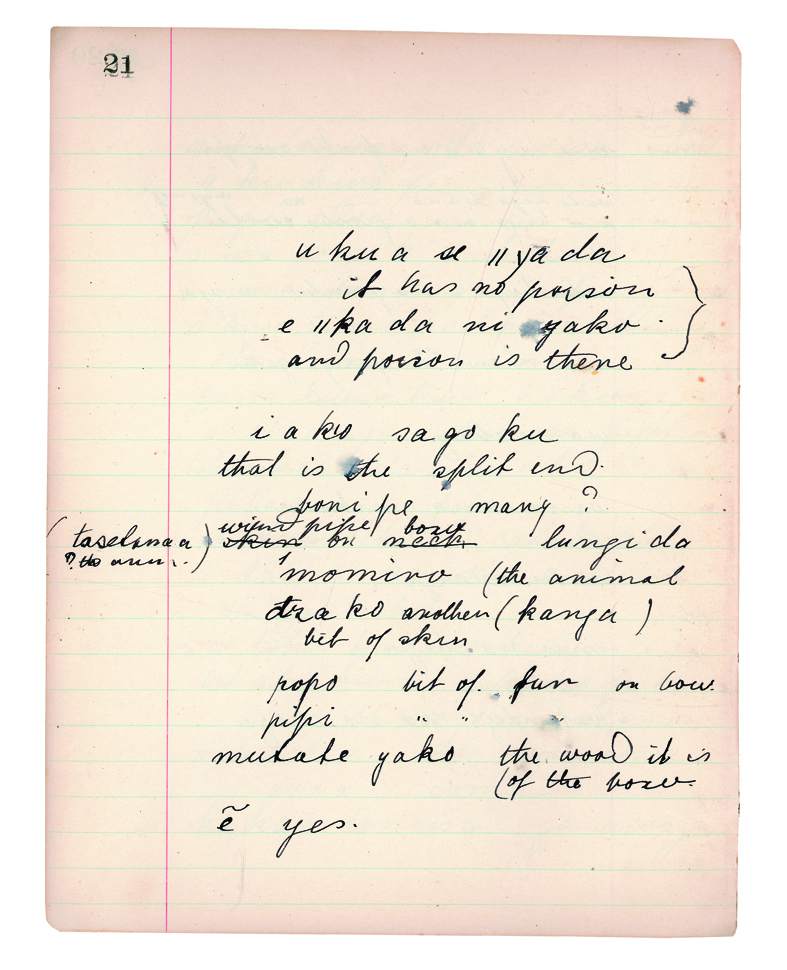 21
u ku a se ǁyā da
it has no poison
e ǁka da ni yako
and poison is there
i a ko sa go ku
that is the split end.
boni pe many ?
wind pipe bow
(taselanaa) skin on neck lungi da
? the
momino (the animal
dzako another (kanga)
bit of skin
popo bit of fur on bow.
pipi " " "
mutate yako the wood it is
(of the bow.
ẽ yes.